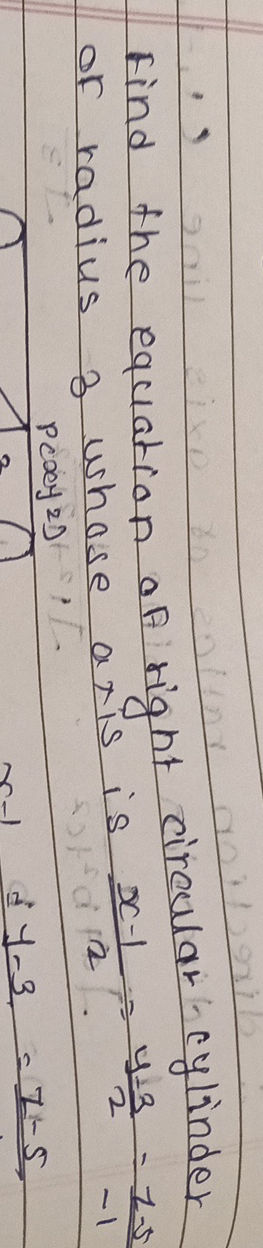 Find the equation of right circular cylinder
of radius 3 whose axis is x-1/2 = y-3/2 = z-5/-1
P(x,y,z)
x-1 = y-3 = z-5